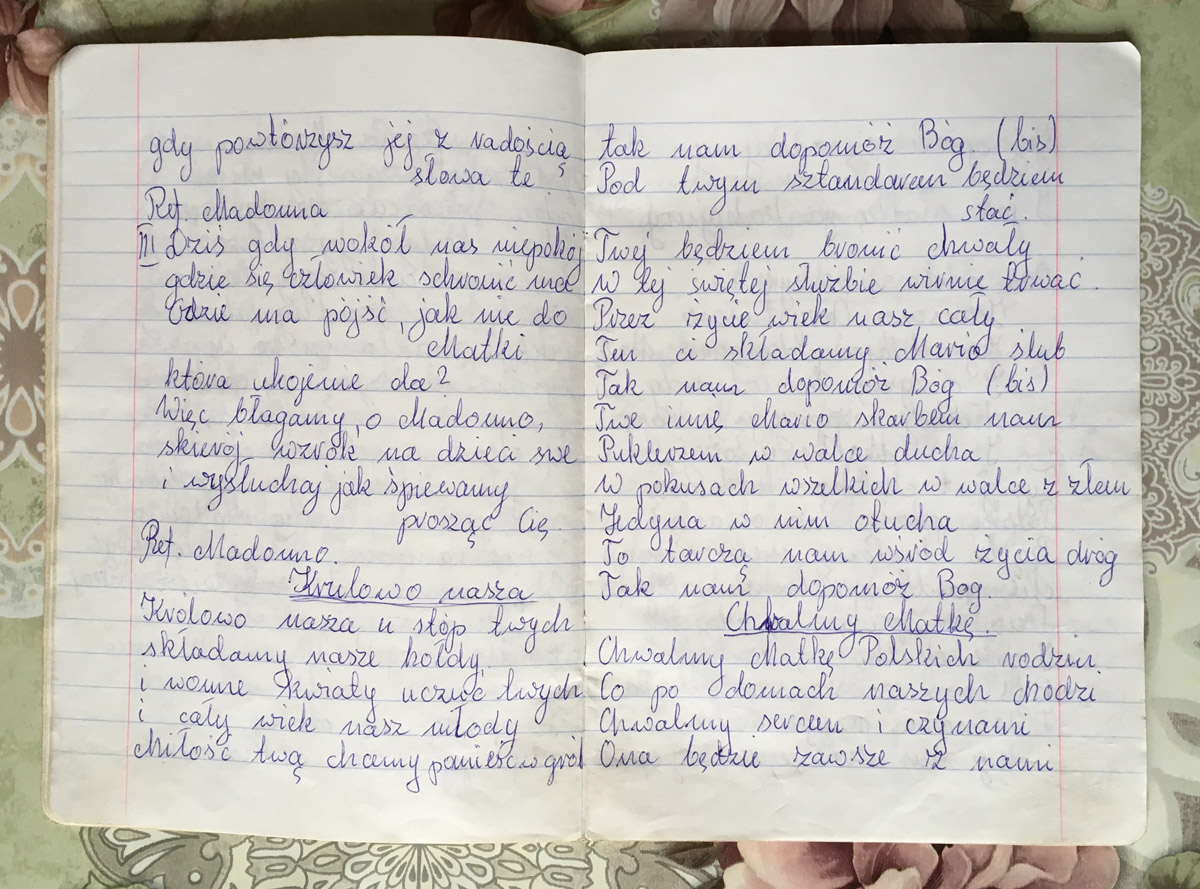 gdy powtórzysz jej z radością
słowa te.
Ref. Madonna
III Dziś gdy wokół nas niepokój
gdzie się człowiek schronić ma
Gdzie ma pójść, jak nie do
Matki
która ukojenie da?
Więc błagamy, o Madonno,
skieruj wzrok na dzieci swe
i wysłuchaj jak śpiewamy
prosząc Cię.
Ref. Madonno.
Królowo nasza
Królowo nasza u stóp twych
składamy nasze hołdy.
i wonne kwiaty uczuć twych
i cały wiek nasz młody
Miłość twą chcemy ponieść w grób
tak nam dopomóż Bóg. (bis)
Pod twym sztandarem będziem
stać.
Twej będziem bronić chwały
w tej świętej służbie wiernie trwać.
Przez życie wiek nasz cały
Ten ci składamy Mario ślub
Tak nam dopomóż Bóg (bis)
Twe imię Mario skarbem nam
Puklerzem w walce ducha
w pokusach wszelkich w walce z złem
Jedyna w nim otucha
To tarczą nam wśród życia dróg
Tak nam dopomóż Bog.
Chwalmy Matkę.
Chwalmy Matkę Polskich rodzin
Co po domach naszych chodzi
Chwalmy sercem i czynami
Ona będzie zawsze z nami